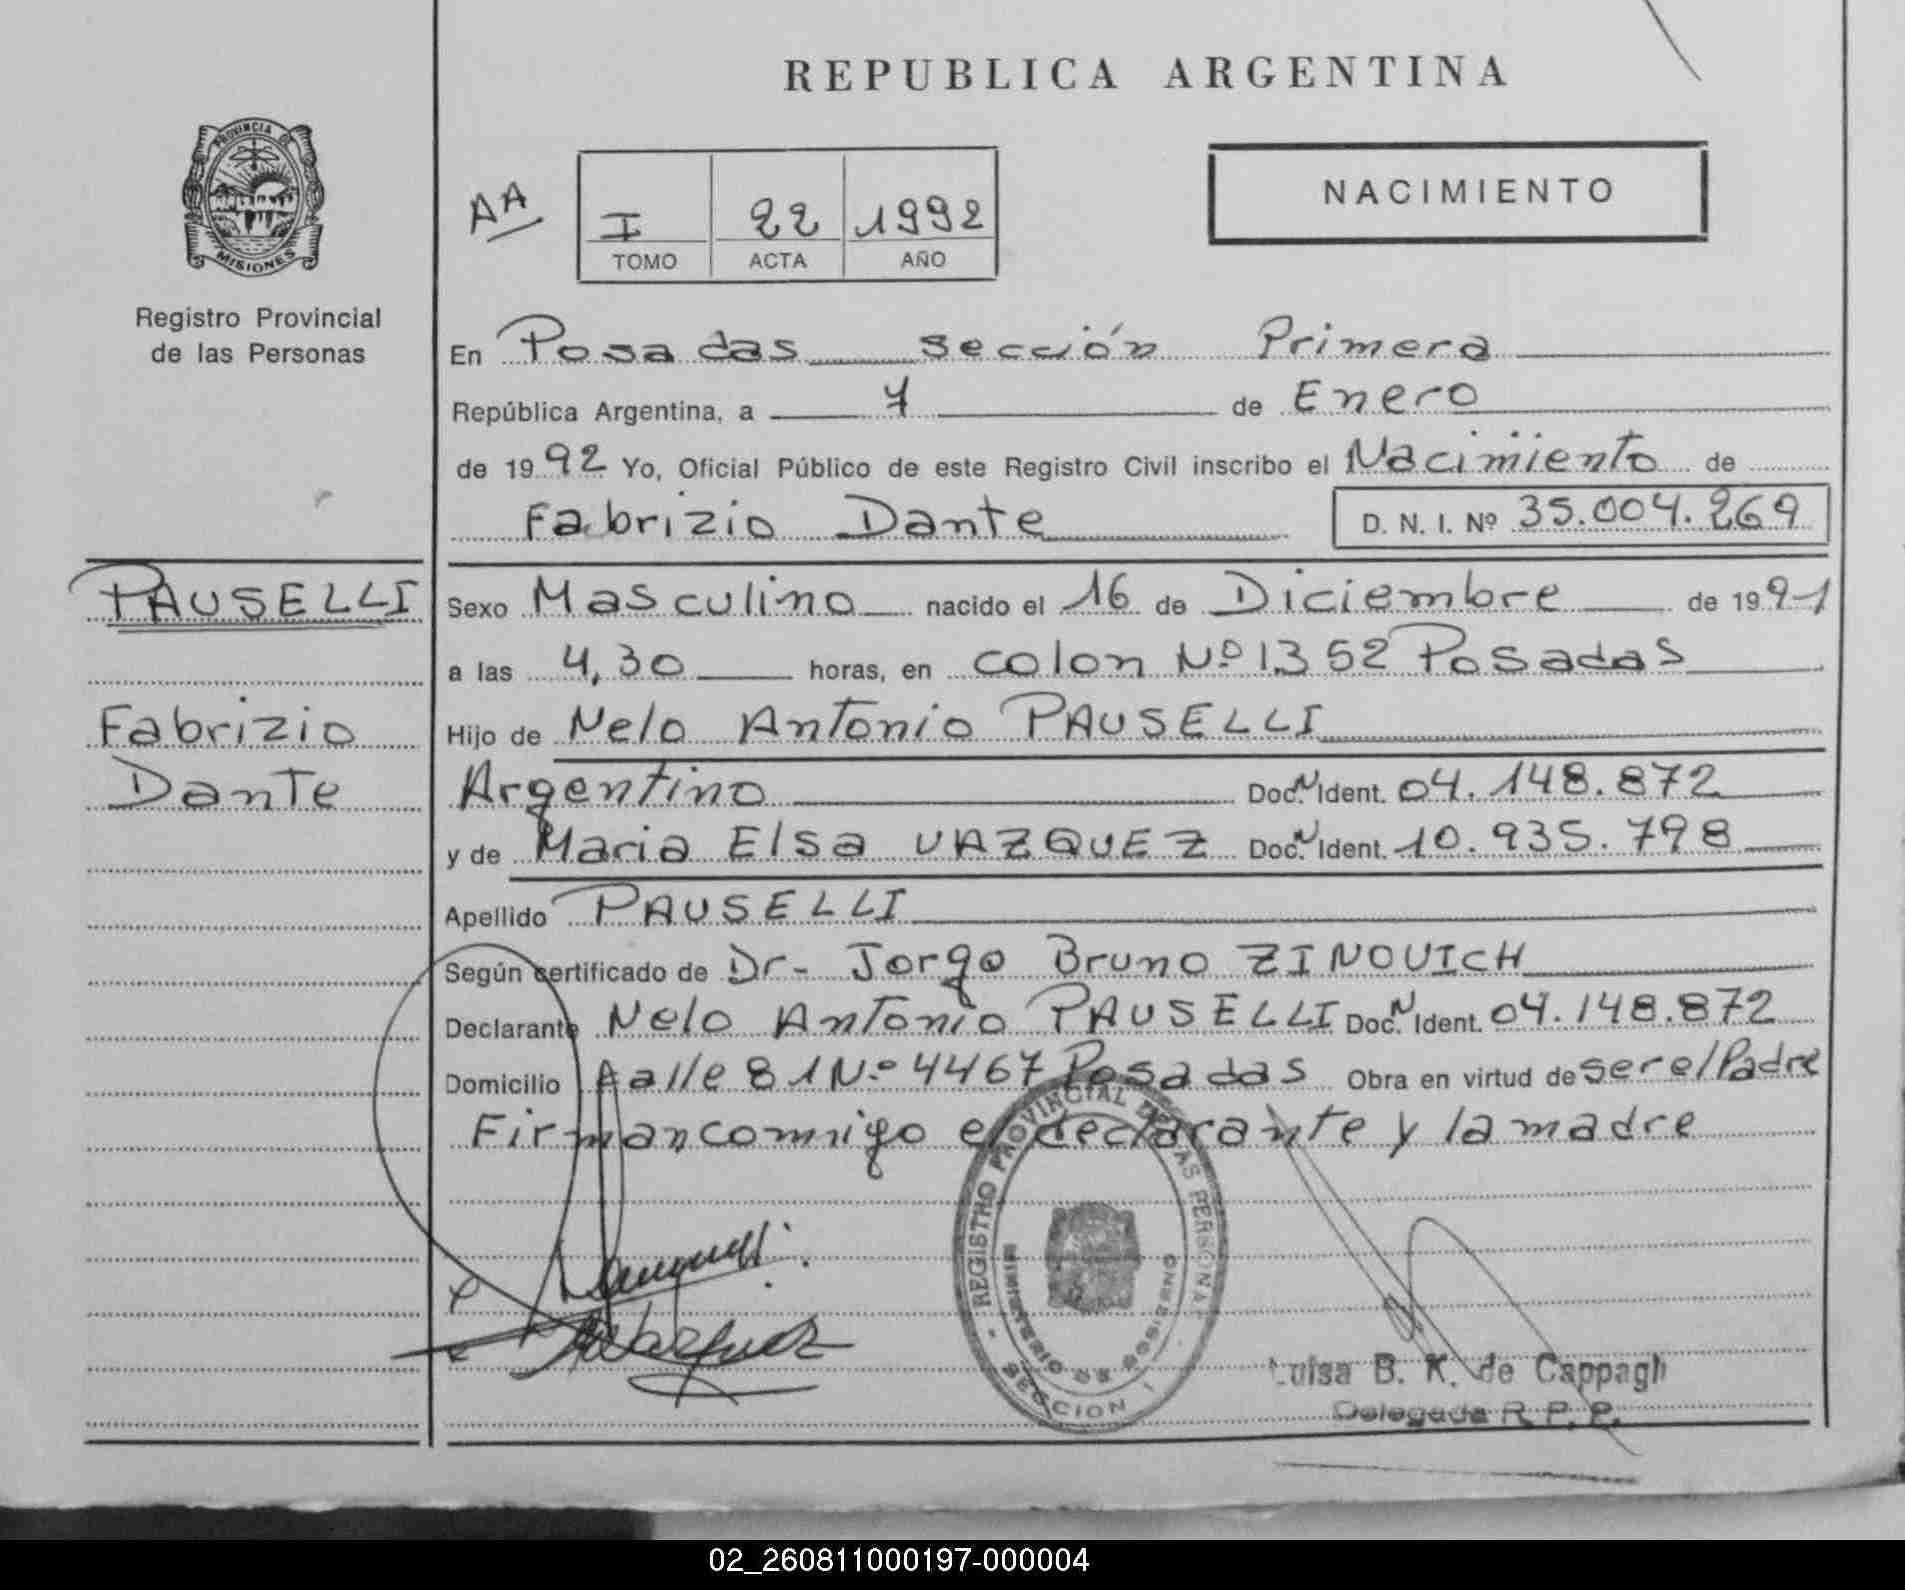 REPUBLICA ARGENTINA
PROVINCIA DE
MISIONES
Registro Provincial
de las Personas
AA
I 22 1992
TOMO ACTA AÑO
NACIMIENTO
En Posadas sección Primera
República Argentina, a 7 de Enero
de 1992 Yo, Oficial Público de este Registro Civil inscribo el Nacimiento de
Fabrizio Dante D. N. I. Nº 35.004.269
PAUSELLI
Fabrizio
Dante
Sexo Masculino nacido el 16 de Diciembre de 1991
a las 4,30 horas, en colon Nº 1352 Posadas
Hijo de Nelo Antonio PAUSELLI
Argentino Doc. N Ident. 04.148.872
y de Maria Elsa VAZQUEZ Doc. N Ident. 10.935.798
Apellido PAUSELLI
Según certificado de Dr- Jorge Bruno ZINOVICH
Declarante Nelo Antonio PAUSELLI Doc. N Ident. 04.148.872
Domicilio Aalle 81 Nº 4467 Posadas Obra en virtud de ser el Padre
Firman conmigo el declarante y la madre
REGISTRO PROVINCIAL DE LAS PERSONAS
MINISTERIO DE GOBIERNO
SECCION I
Luisa B. K. de Cappagli
Delegada R. P. P.
02_260811000197-000004